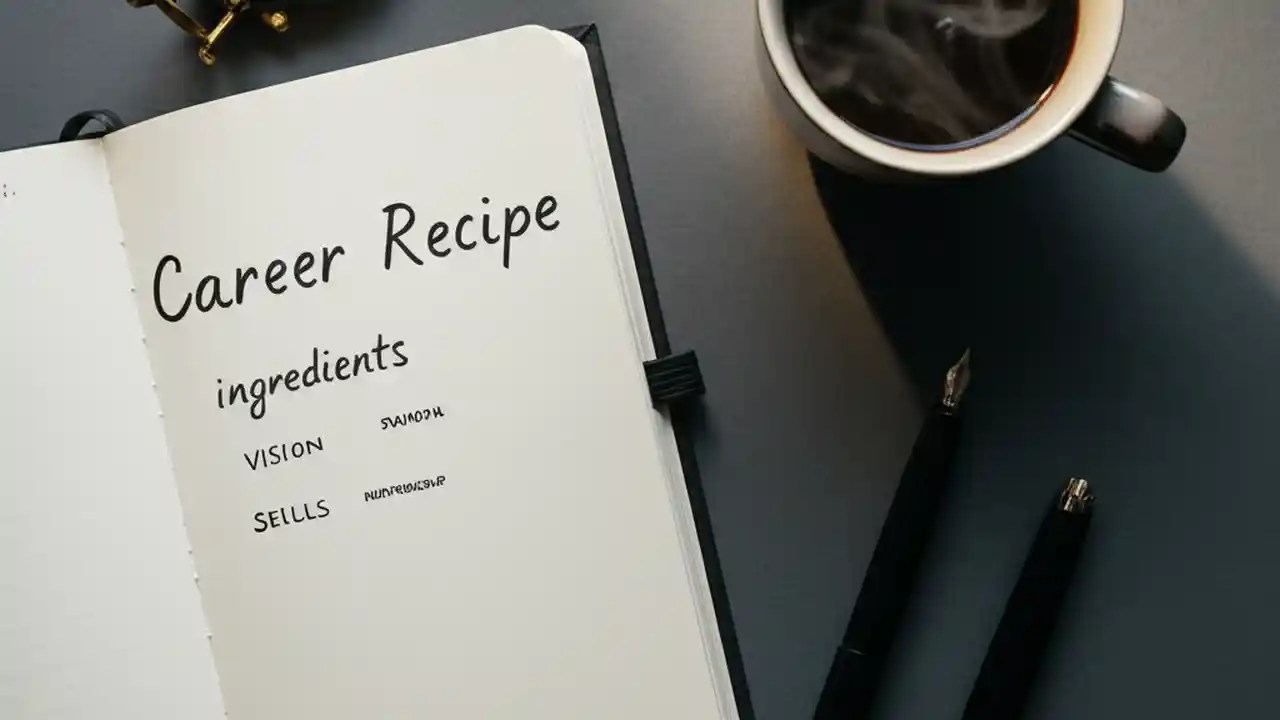 Career Recipe
ingredients
VISION
SEILLS